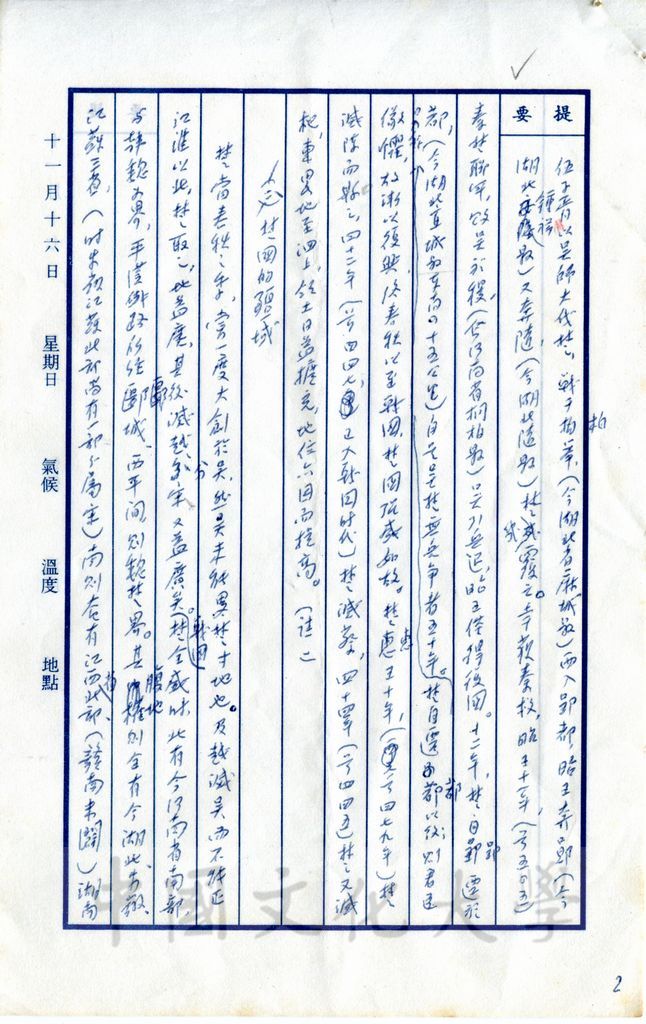 提要
伍子胥以吳師大伐楚，戰于柏舉，（今湖北省麻城縣）西入郢都，昭王奔鄖（今
湖北鍾祥縣）又奔隨（今湖北隨縣）楚幾覆之。幸獲秦救，昭王十一年（公元前五〇五）
秦楚聯軍，敗吳於稷，（今河南省桐柏縣）吳引兵退，昭王僅得復國。十二年，楚自郢遷於
都，（今湖北宜城縣東南四十五公里）自是吳楚無兵爭者五十年。楚自遷都以後，則君臣
儆懼，故漸以復興，終春秋以至戰國，楚國强盛如故。楚惠王十年，（公元前四七九年）楚
滅陳而縣之，四十二年（前四四七，正大戰國時代）楚滅蔡，四十四年（前四四五）楚又滅
杞，東略地至泗上，領土日益擴充，地位亦因而提高。（註二
楚國的疆域
楚當春秋之季，嘗一度大創於吳，然吳未能異楚寸地也。及越滅吳而不能正
江淮以北，楚取之，地益廣，其後滅越、分宋又益廣矣。戰國楚全盛時，北有今河南省南部，
與韓魏為界，平漢鐵路所經郾城、西平間，則魏楚界。其腹地則全有今湖北、安徽、
江蘇三省，（時安徽江蘇北部尚有一部分屬宋）南則奄有江西北部、（贛南未闢）湖南
十一月十六日 星期日 氣候 溫度 地點
中國文化大學
2